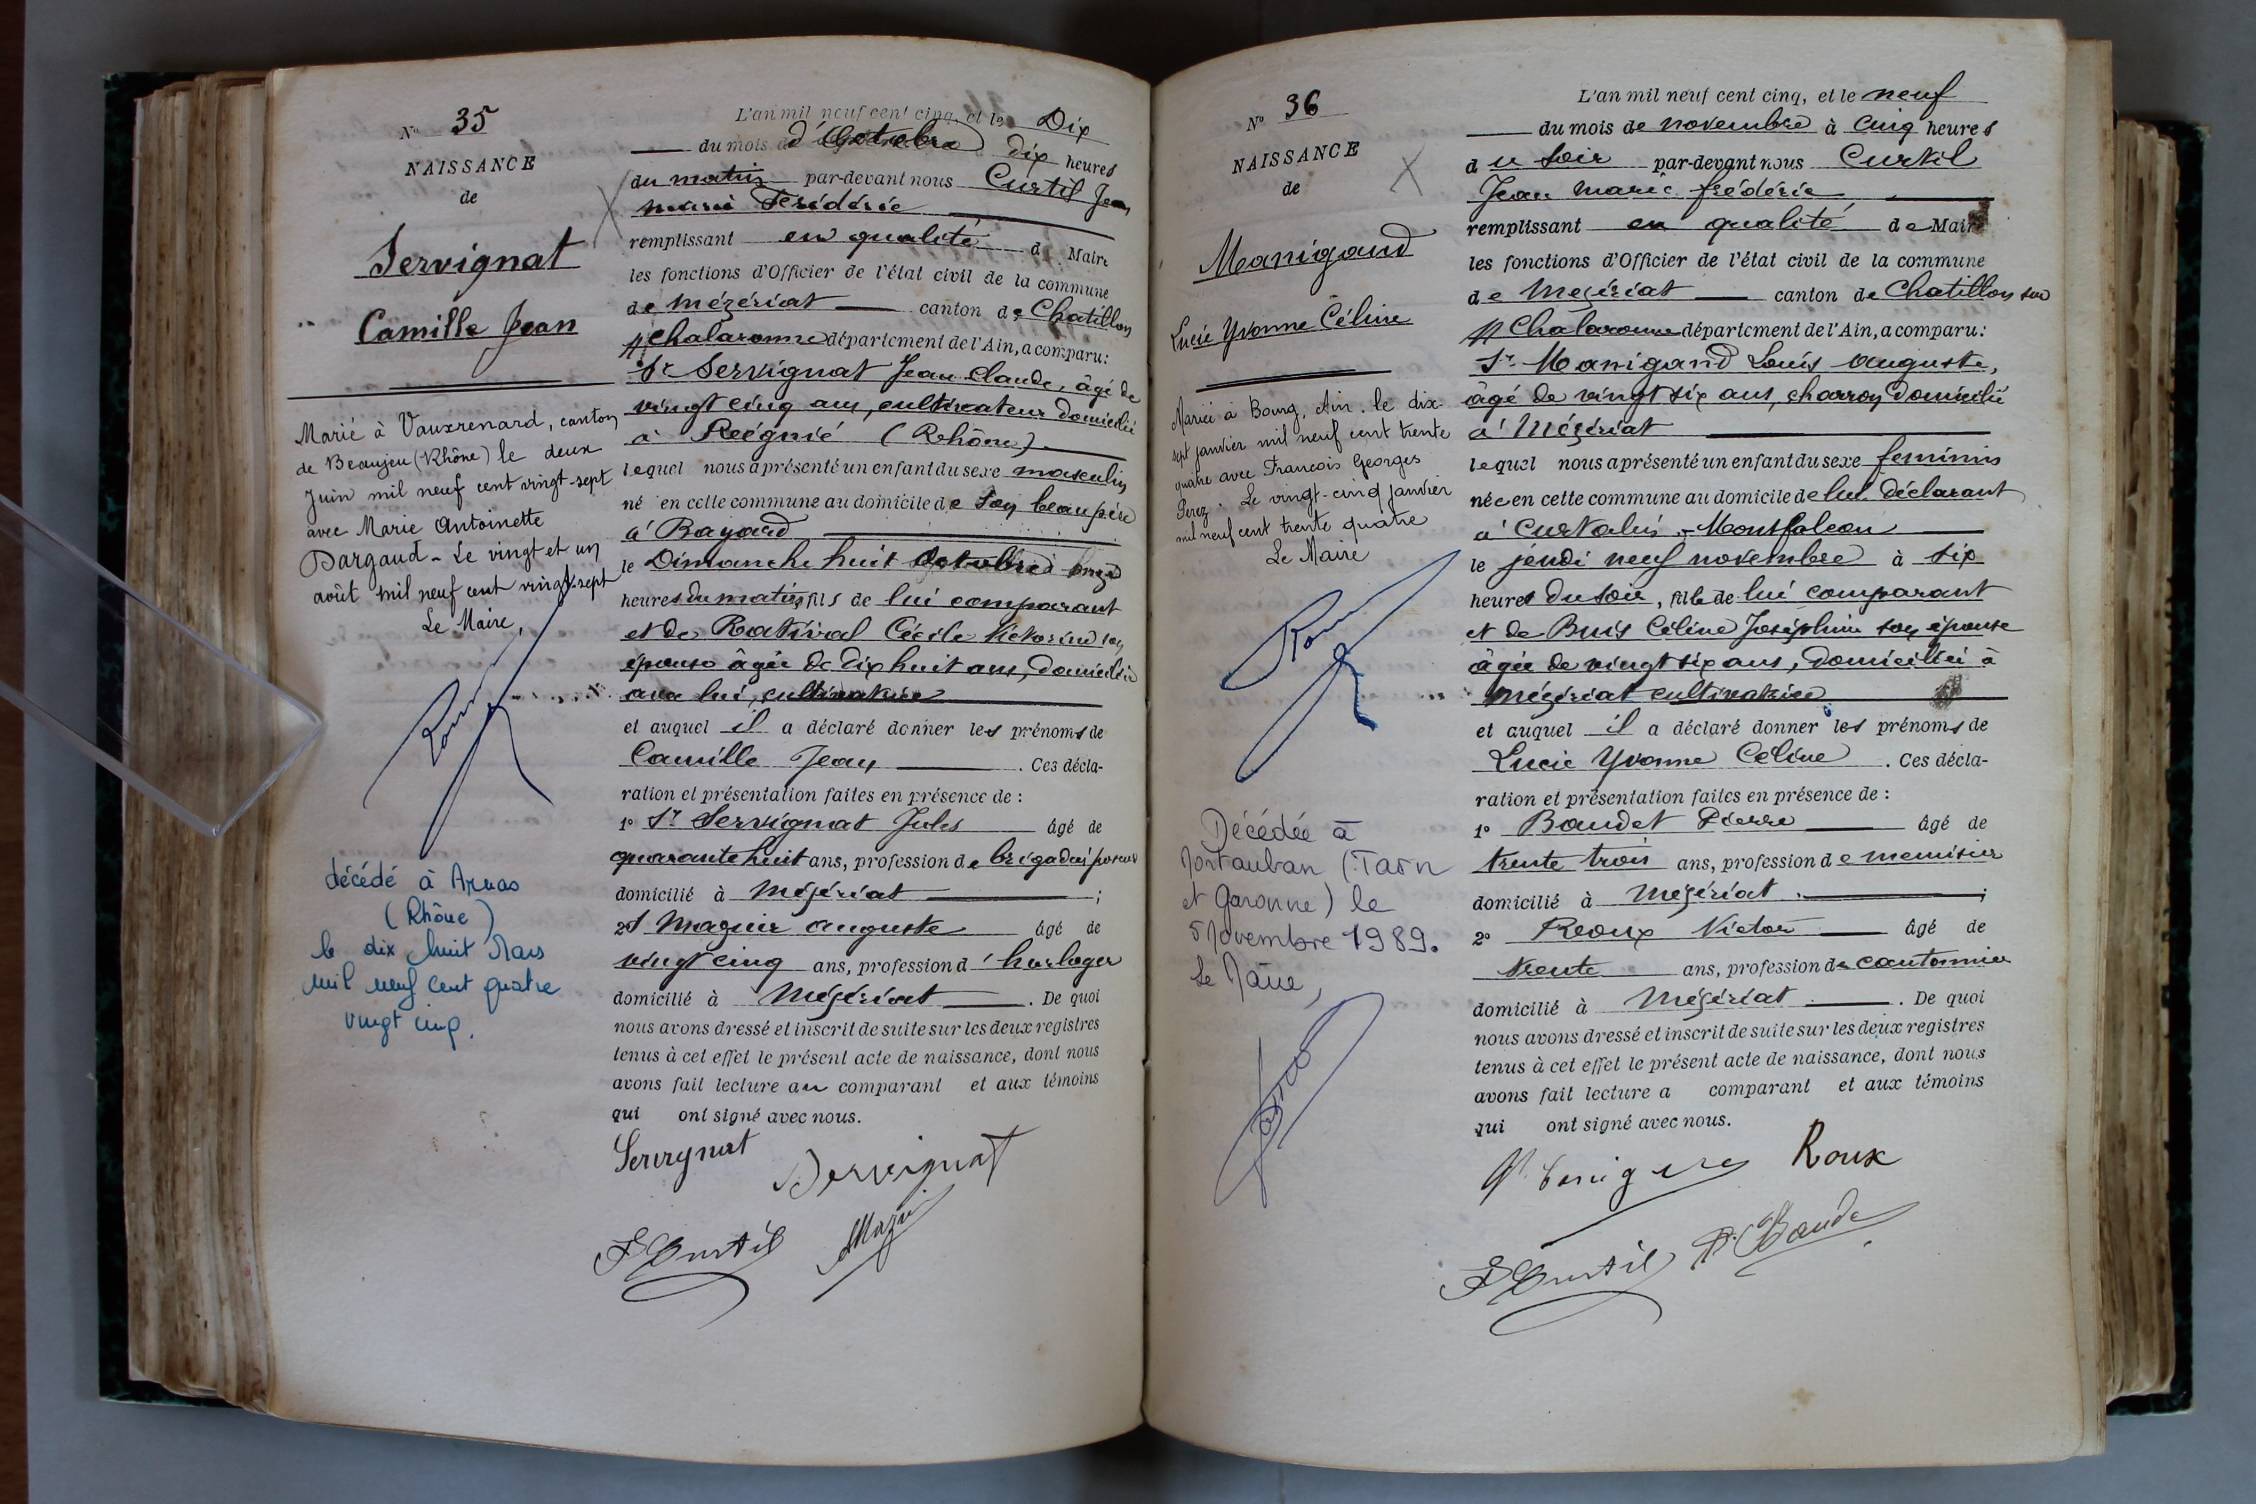 N° 35
NAISSANCE
de
Servignat
Camille Jean
Marié à Vauxrenard, canton
de Beaujeu (Rhône) le deux
Juin mil neuf cent vingt-sept
avec Marie Antoinette
Dargaud - Le vingt et un
août mil neuf cent vingt-sept
Le Maire,
décédé à Arnas
(Rhône)
le dix huit Mars
mil neuf cent quatre
vingt cinq.
L'an mil neuf cent cinq, et le Dix
du mois d'Octobre à dix heures
du matin par-devant nous Curtil Jean
marie Frédéric
remplissant en qualité de Maire
les fonctions d'Officier de l'état civil de la commune
de Mézériat canton de Chatillon
s/ Chalaronne département de l'Ain, a comparu:
Sr Servignat Jean Claude, âgé de
vingt cinq ans, cultivateur domicilié
à Régnié (Rhône)
lequel nous a présenté un enfant du sexe masculin
né en cette commune au domicile de son beau père
à Bayard
le Dimanche huit Octobre à onze
heures du matin, fils de lui comparant
et de Rativat Cécile Victorine son
épouse âgée de dix huit ans, domiciliée
avec lui, cultivatrice
et auquel il a déclaré donner les prénoms de
Camille Jean . Ces décla-
ration et présentation faites en présence de :
1° Sr Servignat Jules âgé de
quarante huit ans, profession de brigadier poseur
domicilié à Mézériat ;
2° S Mazuir auguste âgé de
vingt cinq ans, profession d'horloger
domicilié à Mézériat . De quoi
nous avons dressé et inscrit de suite sur les deux registres
tenus à cet effet le présent acte de naissance, dont nous
avons fait lecture au comparant et aux témoins
qui ont signé avec nous.
Servignat
Servignat
F Curtil
Mazuir
N° 36
NAISSANCE
de
Manigand
Lucie Yvonne Céline
Mariée à Bourg, Ain. le dix-
sept janvier mil neuf cent trente
quatre avec Francois Georges
Perez. Le vingt-cinq janvier
mil neuf cent trente quatre
Le Maire
Décédée à
Montauban (Tarn
et Garonne) le
5 Novembre 1989.
Le Maire,
L'an mil neuf cent cinq, et le neuf
du mois de novembre à cinq heures
du soir par-devant nous Curtil
Jean marie frédéric
remplissant en qualité de Maire
les fonctions d'Officier de l'état civil de la commune
de Mézériat canton de Chatillon sur
s/ Chalaronne département de l'Ain, a comparu:
Sr Manigand Louis Auguste,
âgé de vingt six ans, charron domicilié
à Mézériat
lequel nous a présenté un enfant du sexe feminin
née en cette commune au domicile de lui déclarant
à Curtalin - Montfalcon
le jeudi neuf novembre à six
heures du soir, fille de lui comparant
et de Buis Céline Joséphine son épouse
âgée de vingt six ans, domiciliée à
Mézériat cultivatrice
et auquel il a déclaré donner les prénoms de
Lucie Yvonne Celine . Ces décla-
ration et présentation faites en présence de :
1° Baudet Pierre âgé de
trente trois ans, profession de menuisier
domicilié à Mézériat ;
2° Roux Victor âgé de
trente ans, profession de cantonnier
domicilié à Mézériat . De quoi
nous avons dressé et inscrit de suite sur les deux registres
tenus à cet effet le présent acte de naissance, dont nous
avons fait lecture a comparant et aux témoins
qui ont signé avec nous.
Roux
F Curtil
P. Baudet